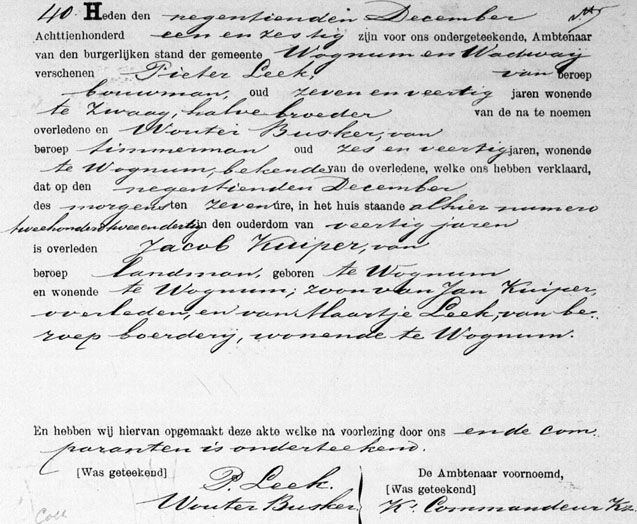 40. Heden den negentienden December
Achttienhonderd een en zestig zijn voor ons ondergeteekende, Ambtenaar
van den burgerlijken stand der gemeente Wognum en Wadway
verschenen Pieter Leek, van beroep
bouwman, oud zeven en veertig jaren wonende
te Zwaag, halve broeder van de na te noemen
overledene en Wouter Busker, van
beroep timmerman oud zes en veertig jaren, wonende
te Wognum, bekende van de overledene, welke ons hebben verklaard,
dat op den negentienden December
des morgens ten zeven ure, in het huis staande alhier numero
tweehonderd twee en dertig in den ouderdom van veertig jaren
is overleden Jacob Kuiper, van
beroep landman, geboren te Wognum
en wonende te Wognum; zoon van Jan Kuiper,
overleden, en van Maartje Leek, van be-
roep boerderij, wonende te Wognum.
En hebben wij hiervan opgemaakt deze akte welke na voorlezing door ons en de com-
paranten is onderteekend.
[Was geteekend] P. Leek.
Wouter Busker
De Ambtenaar voornoemd,
[Was geteekend]
Ks. Commandeur Kz.
Coll